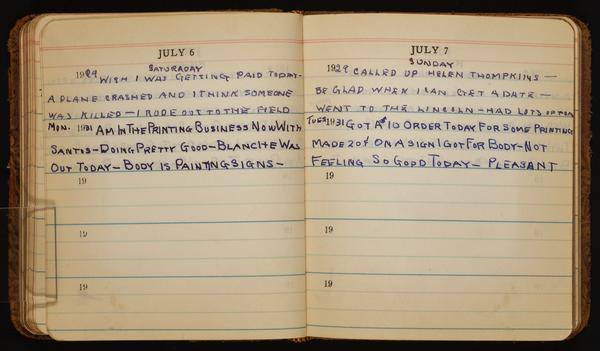 JULY 6
SATURADAY
1929 WISH I WAS GETTING PAID TODAY-
A PLANE CRASHED AND I THINK SOMEONE
WAS KILLED - I RODE OUT TO THE FIELD
MON. 1931 AM IN THE PRINTING BUSINESS NOW WITH
SANTOS-DOING PRETTY GOOD-BLANCHE WAS
OUT TODAY-BODY IS PAINTING SIGNS-
19
19
19
JULY 7
SUNDAY
1929 CALLED UP HELEN THOMPKINS-
BE GLAD WHEN I CAN GET A DATE-
WENT TO THE LINCOLN-HAD LOTS OF FUN
TUES 1931 GOT A $10 ORDER TODAY FOR SOME PRINTING
MADE 20¢ ON A SIGN I GOT FOR BODY-NOT
FEELING SO GOOD TODAY- PLEASANT
19
19
19